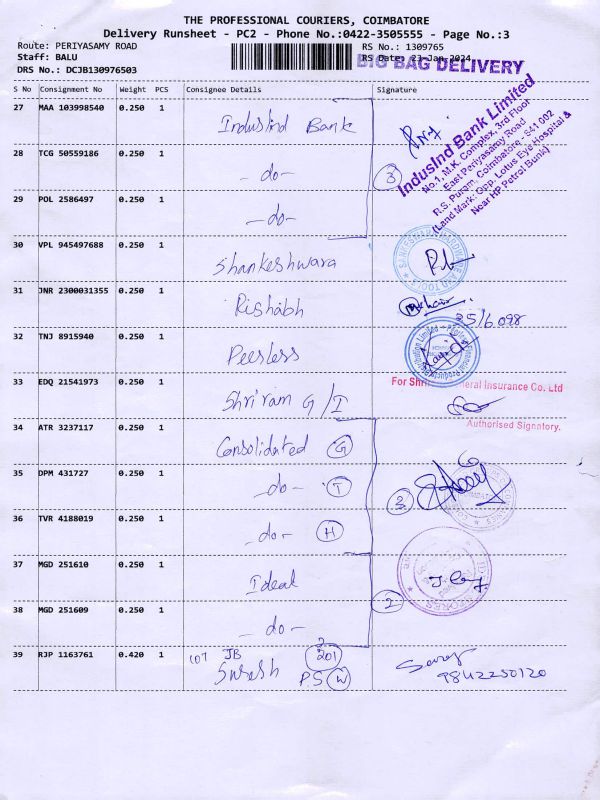 THE PROFESSIONAL COURIERS, COIMBATORE
Delivery Runsheet - PC2 - Phone No.:0422-3505555 - Page No.:3
Route: PERIYASAMY ROAD
RS No.: 1309765
Staff: BALU
RS Date: 23-Jan-2024
BIG BAG DELIVERY
DRS No.: DCJB130976503
S No Consignment No Weight PCS Consignee Details Signature
27 MAA 103998540 0.250 1 IndusInd Bank
28 TCG 50559186 0.250 1 -do- 3
IndusInd Bank Limited
No.1, M.K. Complex, 3rd Floor
East Periyasamy Road
R.S. Puram, Coimbatore - 641 002
(Land Mark: Opp. Lotus Eye Hospital &
Near HP Petrol Bunk)
29 POL 2586497 0.250 1 -do-
30 VPL 945497688 0.250 1 Shankeshwara
31 JNR 2300031355 0.250 1 Rishabh
32 TNJ 8915940 0.250 1 Peerless
33 EDQ 21541973 0.250 1 Shriram G/I
For Shri General Insurance Co. Ltd
Authorised Signatory.
34 ATR 3237117 0.250 1 Consolidated G
35 DPM 431727 0.250 1 -do- T 3
36 TVR 4188019 0.250 1 -do- H
37 MGD 251610 0.250 1 Ideal
38 MGD 251609 0.250 1 -do- 2
39 RJP 1163761 0.420 1 107 JB 201
Suresh P.S W
9842250120